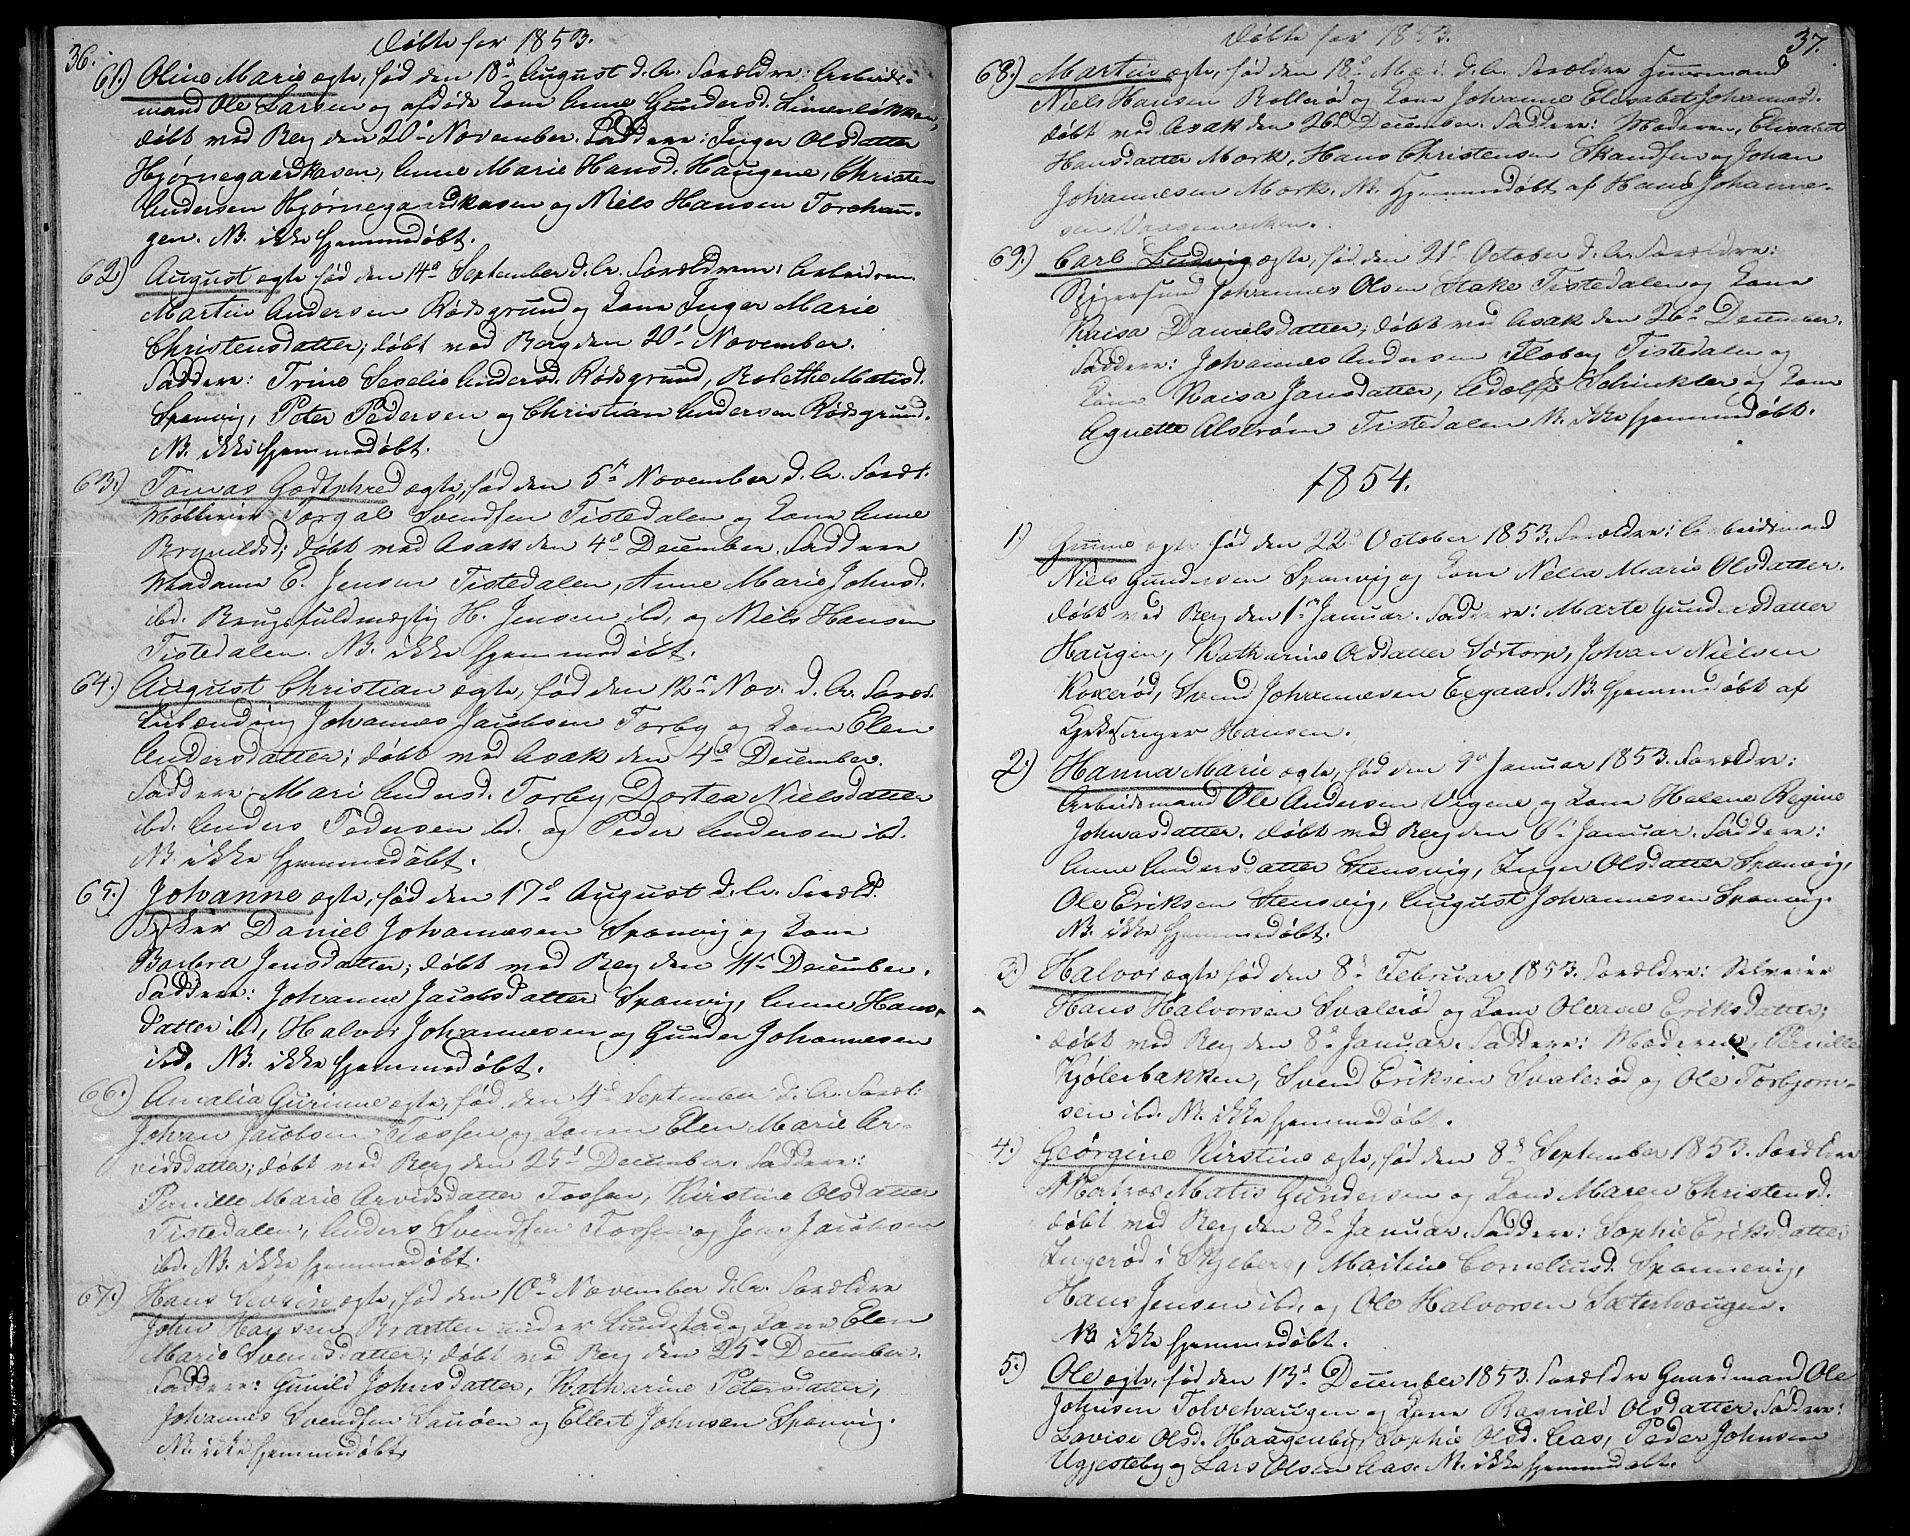 36.
Døbte for 1853.
61.) Oline Marie ægte, fød den 18d August d. A. Forældre: Arbeids-
mand Ole Larsen og afdøde Kone Anne Gundersd. Limenløkken,
døbt ved Berg den 20d November. Faddere: Inger Olsdatter
Hjørnegaardkasen, Anne Marie Hansd. Haugene, Christen
Andersen Hjørnegaardkasen og Niels Hansen Torehau-
gen. NB. ikke hjemmedøbt.
62.) August ægte fød den 14d September d. A. Forældrene: Arbeidsm.
Martin Andersen Rødsgrund og Kone Inger Marie
Christensdatter; døbt ved Berg den 20d November.
Faddere: Trine Seselie Andersd. Rødsgrund, Bolethe Matisd.
Sponvig, Peter Pedersen og Christian Andersen Rødsgrund.
NB. ikke hjemmedøbt.
63.) Tomas Godtphred ægte, fød den 5te November d. A. Foræl.
Møllerier Torgal Svendsen Tistedalen og Kone Anne
Brynildsd; døbt ved Asak den 4d December. Faddere
Madame E. Jensen Tistedalen, Anne Marie Johnsd.
ibd. Brugsfuldmægtig H. Jensen ibd, og Niels Hansen
Tistedalen. NB. ikke hjemmedøbt.
64.) August Christian ægte, fød den 12te Nov. d. A. Foræl.
Johannes Jacobsen Torby og Kone Elen
Andersdatter; døbt ved Asak den 4d December.
Faddere: Mari Andersd. Torby, Dortea Nielsdatter
ibd. Anders Pedersen ibd. og Peder Andersen ibd.
NB ikke hjemmedøbt.
65.) Johanne ægte, fød den 17d August d. A. Foræld.
Fisker Daniel Johannesen Sponvig og Kone
Barbra Jensdatter; døbt ved Berg den 11te December.
Faddere: Johanne Jacobsdatter Sponvig, Anne Hans-
datter ibd, Halvor Johannesen og Gunder Johannesen
ibd. NB. ikke hjemmedøbt.
66.) Amalia Gurinne ægte, fød den 4d September d. A. Foræl:
Johan Jacobsen Fossen og Konen Elen Marie Ar-
vidsdatter; døbt ved Berg den 25d December. Faddere:
Pernille Marie Arvidsdatter Fossen, Kirstine Olsdatter
Tistedalen, Anders Svendsen Fossen og Jens Jacobsen
ibd. NB. ikke hjemmedøbt.
67.) Hans Severin ægte, fød den 10d November d. A. Forældre
John Hansen Braaten under Lundestad og Kone Elen
Marie Svendsdatter; døbt ved Berg den 25d December.
Faddere: Gunild Johnsdatter, Katharine Petersdatter,
Johannes Svendsen Sauøen og Ellert Johnsen Sponvig.
NB. ikke hjemmedøbt.
37.
Døbte for 1853.
68.) Martin ægte, fød den 18d Mai d. A. Forældre Huusmand
Niels Hansen Rollerød og Kone Johanne Elisabet Johannesd.
døbt ved Asak den 26d December. Faddere: Moderen, Elisabet
Hansdatter Mork, Hans Christensen Skandsen og Johan
Johannesen Mork. NB. Hjemmedøbt af Hans Johanne-
sen
69.) Carl Ludvig ægte, fød den 21d October d. A. Forældre:
Johannes Olsen Stake Tistedalen og Kone
Kaisa Danielsdatter; døbt ved Asak den 26d December.
Faddere: Johannes Andersen Floberg Tistedalen og
Kone Kaisa Jansdatter, Adolff Schinkler og Kone
Agnette Alstrøm Tistedalen NB. ikke hjemmedøbt.
1854.
1) ægte fød den 22d October 1853. Forældre: Arbeidsmand
Niels Gundersen Sponvig og Kone Nella Marie Olsdatter.
døbt ved Berg den 1te Januar. Faddere: Marte Gundersdatter
Haugen, Katharine Olsdatter Sørtorp, Johan Nielsen
Roxerød, Svend Johannesen Eegaas. NB. hjemmedøbt af
Kirkesanger Hansen.
2.) Hanna Marie ægte, fød den 9d Januar 1853. Forældre:
Arbeidsmand Ole Andersen Vigene og Kone Helene Regine
Johnasdatter. døbt ved Berg den 6te Januar. Faddere:
Anne Andersdatter Stensvig, Inger Olsdatter Sponvig,
Ole Eriksen Stensvig, August Johannesen Sponvig.
NB. ikke hjemmedøbt.
3.) Halvor ægte fød den 8d Februar 1853. Forældre: Selveier
Hans Halvorsen Svalerød og Kone Oleane Eriksdatter;
døbt ved Berg den 8d Januar. Faddere: Moderen, Pernille
Kjølerbakken, Svend Eriksen Svalerød og Ole Torbjørn-
sen ibd. NB. ikke hjemmedøbt.
4.) Geörgine Kirstine ægte, fød den 8d September 1853. Forældre
Matros Matis Gundersen og Kone Maren Christensd.
døbt ved Berg den 8d Januar. Faddere: Sophie Eriksdatter
Ingerød i Skjeberg, Martine Corneliusd. Sponnevig,
Hans Jensen ibd, og Ole Halvorsen Sæterhaugen.
NB ikke hjemmedøbt.
5.) Ole ægte, fød den 13d December 1853. Forældre Gaardmand Ole
Johnsen Tolvehaugen og Kone Ragnild Olsdatter. Faddere:
Lovise Olsd. Haagenby, Sophie Olsd. Aas, Peder Johnsen
Ugjesteby og Lars Olsen Aas. NB. ikke hjemmedøbt.